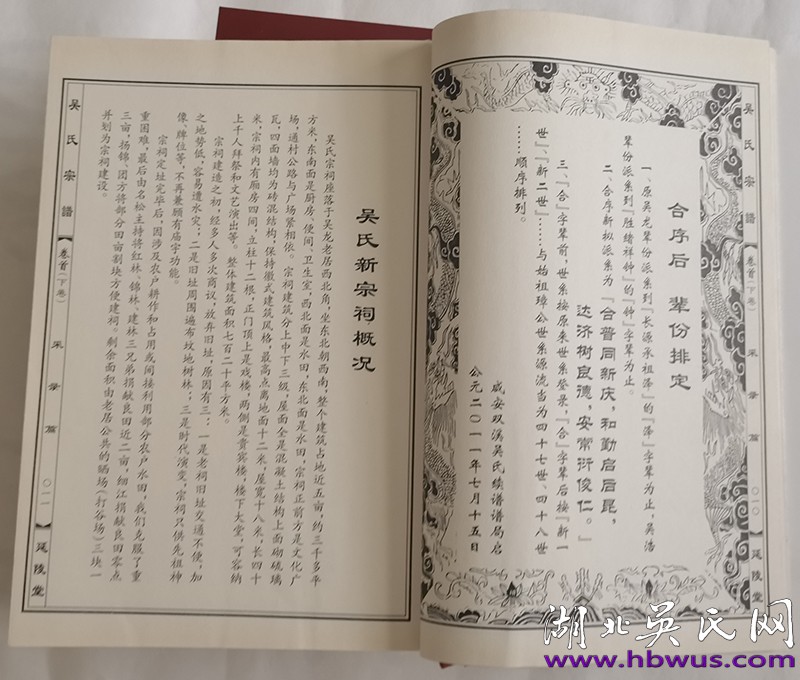 吴氏宗谱
卷首(下卷)
采录篇
〇一〇
延陵堂
合序后 辈份排定
一、原吴龙辈份派系到『长源承祖泽』的『泽』字辈为止，吴浩
辈份派系到『胜绪祥钟』的『钟』字辈为止。
二、合序新拟派系为『合普同新庆，和勤启后昆，
达济树良德，安常衍俊仁。』
三、『合』字辈前，世系按原来世系登录，『合』字辈后按『新一
世』、『新二世』……与始祖璋公世系源流当为四十七世、四十八世
……顺序排列。
咸安双溪吴氏续谱谱局启
公元二〇一一年七月十五日
吴氏新宗祠概况
吴氏宗祠座落于吴龙老居西北角，坐东北朝西南，整个建筑占地近五亩，约三千多平
方米，东南面是厨房、便间、卫生室，西北面是水田，东北面是水田，宗祠正前方是文化广
场，通村公路与广场紧相依。宗祠建筑分上中下三级，屋面全是混凝土结构上面砌琉璃
瓦，四面墙均为砖混结构，保持徽式建筑风格，最高点离地面十二米，屋宽十八米，长四十
米，宗祠内有厢房四间，立柱十二根，正门顶上是戏楼，两侧是贵宾楼，楼下大堂，可容纳
上千人拜祭和文艺演出等。整体建筑面积七百二十平方米。
宗祠建造之初，经多人多次商议，放弃旧址，原因有三：一是老祠旧址交通不便，加
之地势低，容易遭水灾；二是旧址周围遍布坟地树林；三是时代演变，宗祠只供先祖神
像、牌位等，不再兼顾有庙宇功能。
宗祠定址完毕后，因涉及农户耕作和占用或间接利用部分农户水田，我们克服了重
重困难，最后由名松主持将红林、锦林、建林三兄弟捐献良田近二亩，细江捐献良田零点
三亩，扬锦、团方将部分田亩割块方便建祠。剩余面积由老居公共的晒场(打谷场)三块一
并划为宗祠建设。
吴氏宗谱
卷首(下卷)
采录篇
〇一一
延陵堂
湖北吴氏网
www.hbwus.com